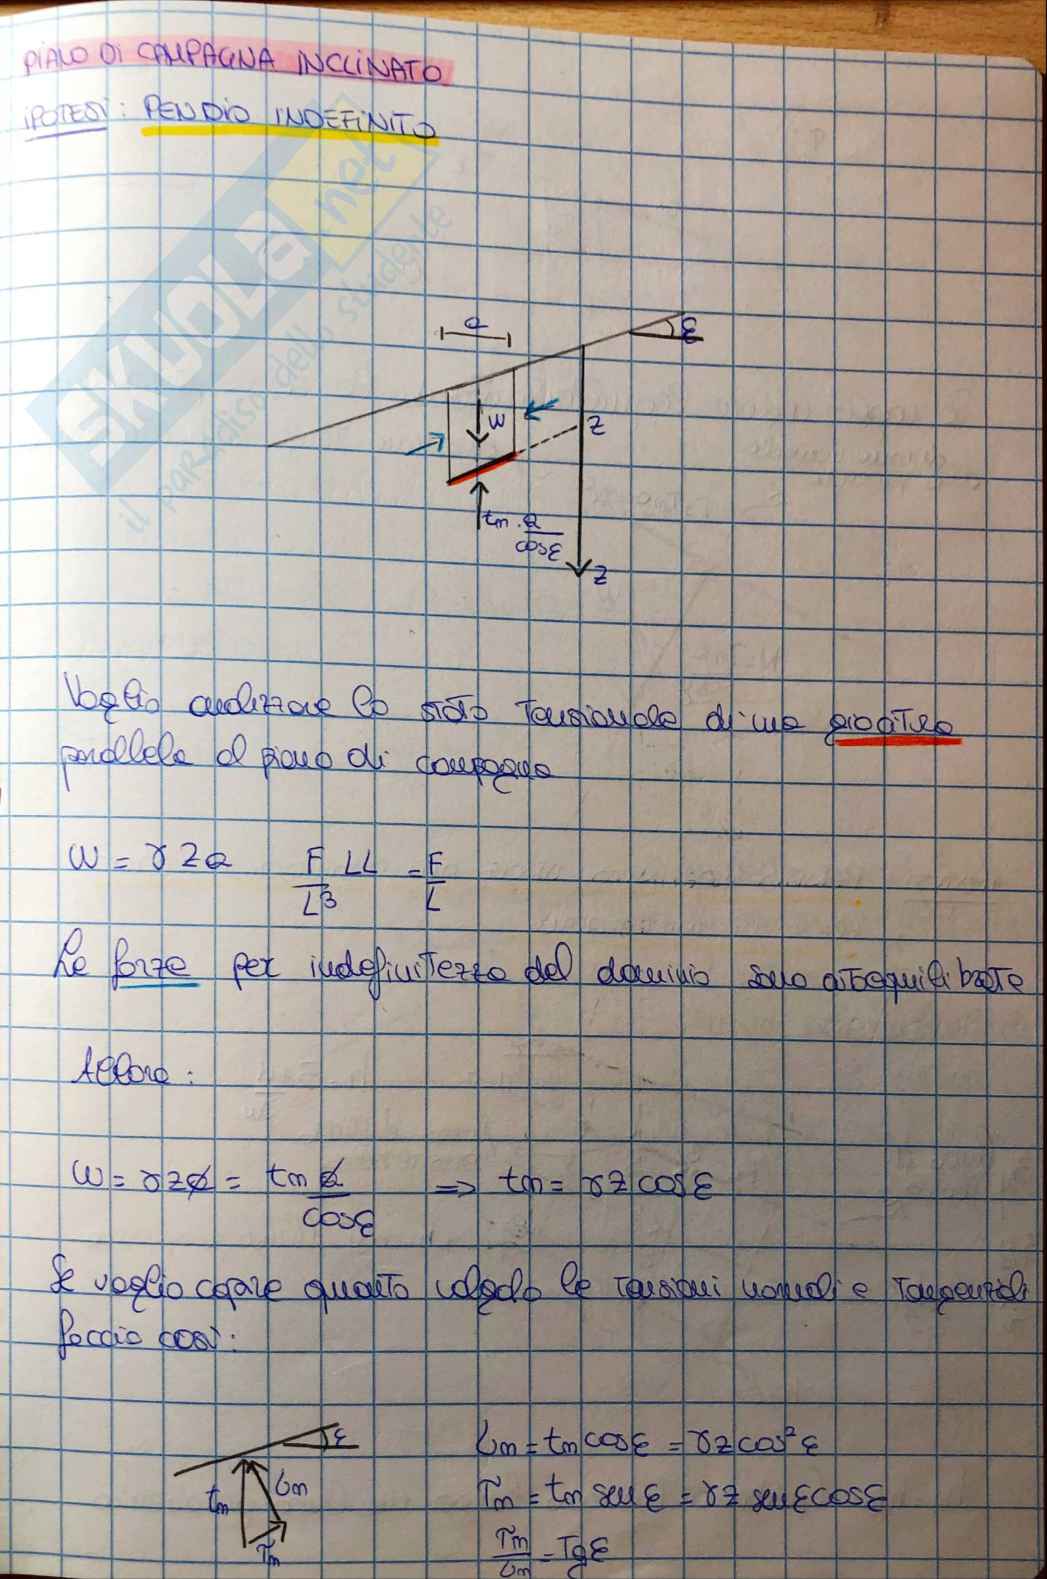 PIANO DI CAMPAGNA INCLINATO
IPOTESI: PENDIO INDEFINITO
SKUOLA.net
il paradiso dello studente
a
ε
W
z
tn · a/cosε
z
Voglio analizzare lo stato tensionale di una giacitura
parallela al piano di campagna
W = γza F/L3 LL = F/L
Le forze per indefinitezza del dominio sono autoequilibrate
Allora:
W = γza = tn a/cosε => tn = γz cosε
Se voglio capire quanto valgono le tensioni normali e tangenziali
faccio così:
ε
tn
σn
τn
σn = tn cosε = γz cos²ε
τn = tn senε = γz senε cosε
τn/σn = Tgε